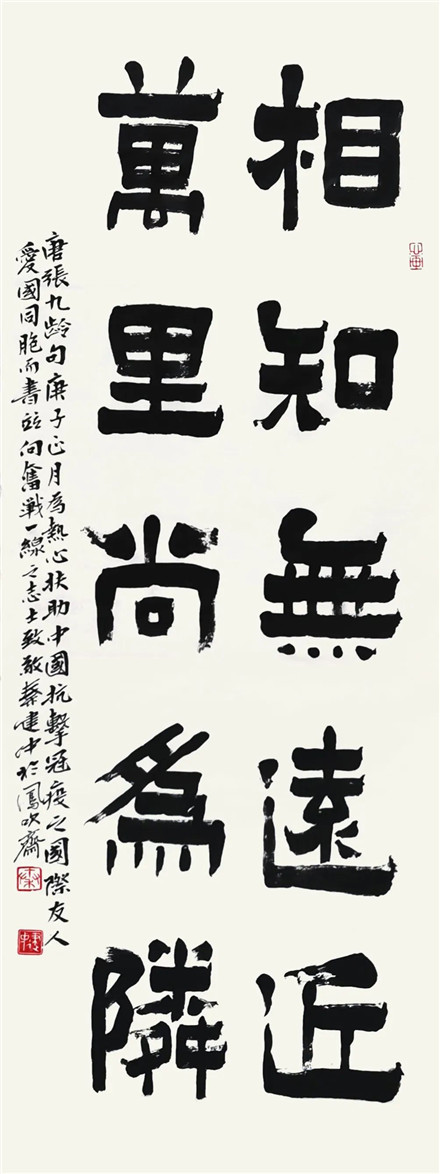 相知無遠近
萬里尚為隣
唐張九龄句庚子正月為熱心扶助中國抗擊冠疫之國際友人
愛國同胞而書並向奮戰一線之志士致敬蔡建中於鳳吹齋